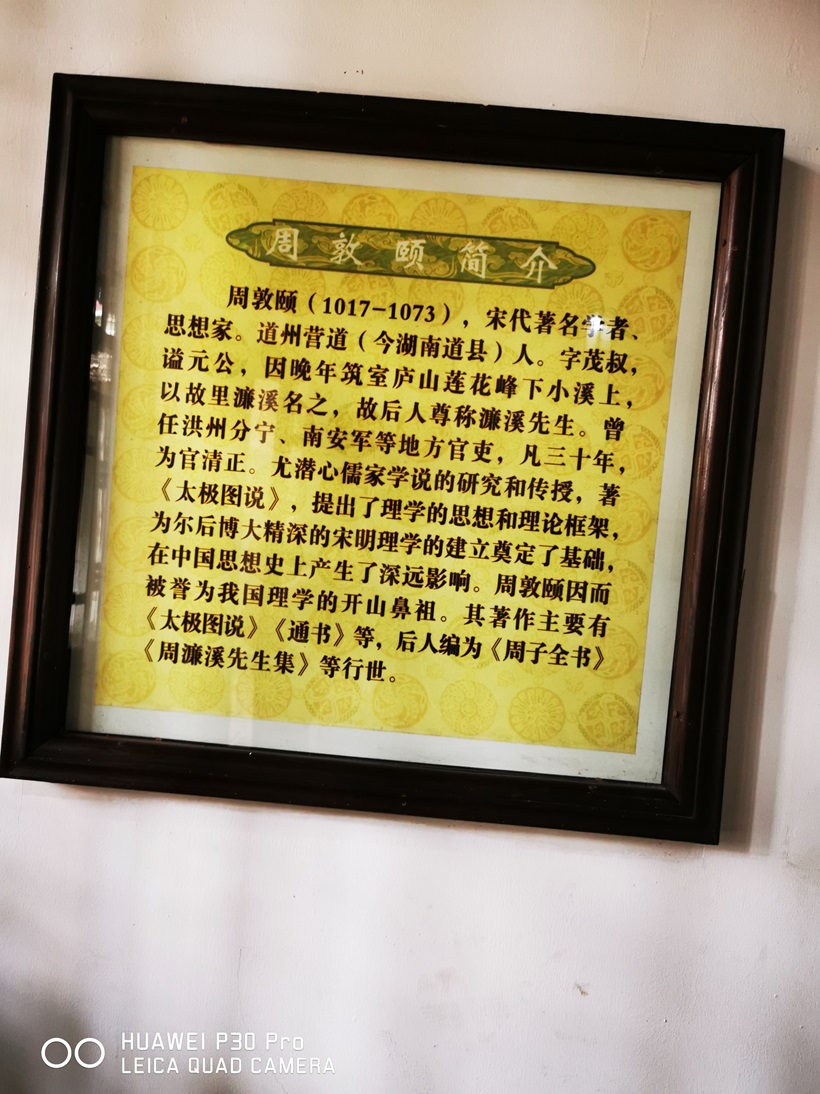 周敦颐简介
周敦颐（1017-1073），宋代著名学者、
思想家。道州营道（今湖南道县）人。字茂叔，
谥元公，因晚年筑室庐山莲花峰下小溪上，
以故里濂溪名之，故后人尊称濂溪先生。曾
任洪州分宁、南安军等地方官吏，凡三十年，
为官清正。尤潜心儒家学说的研究和传授，著
《太极图说》，提出了理学的思想和理论框架，
为尔后博大精深的宋明理学的建立奠定了基础，
在中国思想史上产生了深远影响。周敦颐因而
被誉为我国理学的开山鼻祖。其著作主要有
《太极图说》《通书》等，后人编为《周子全书》
《周濂溪先生集》等行世。
HUAWEI P30 Pro
LEICA QUAD CAMERA